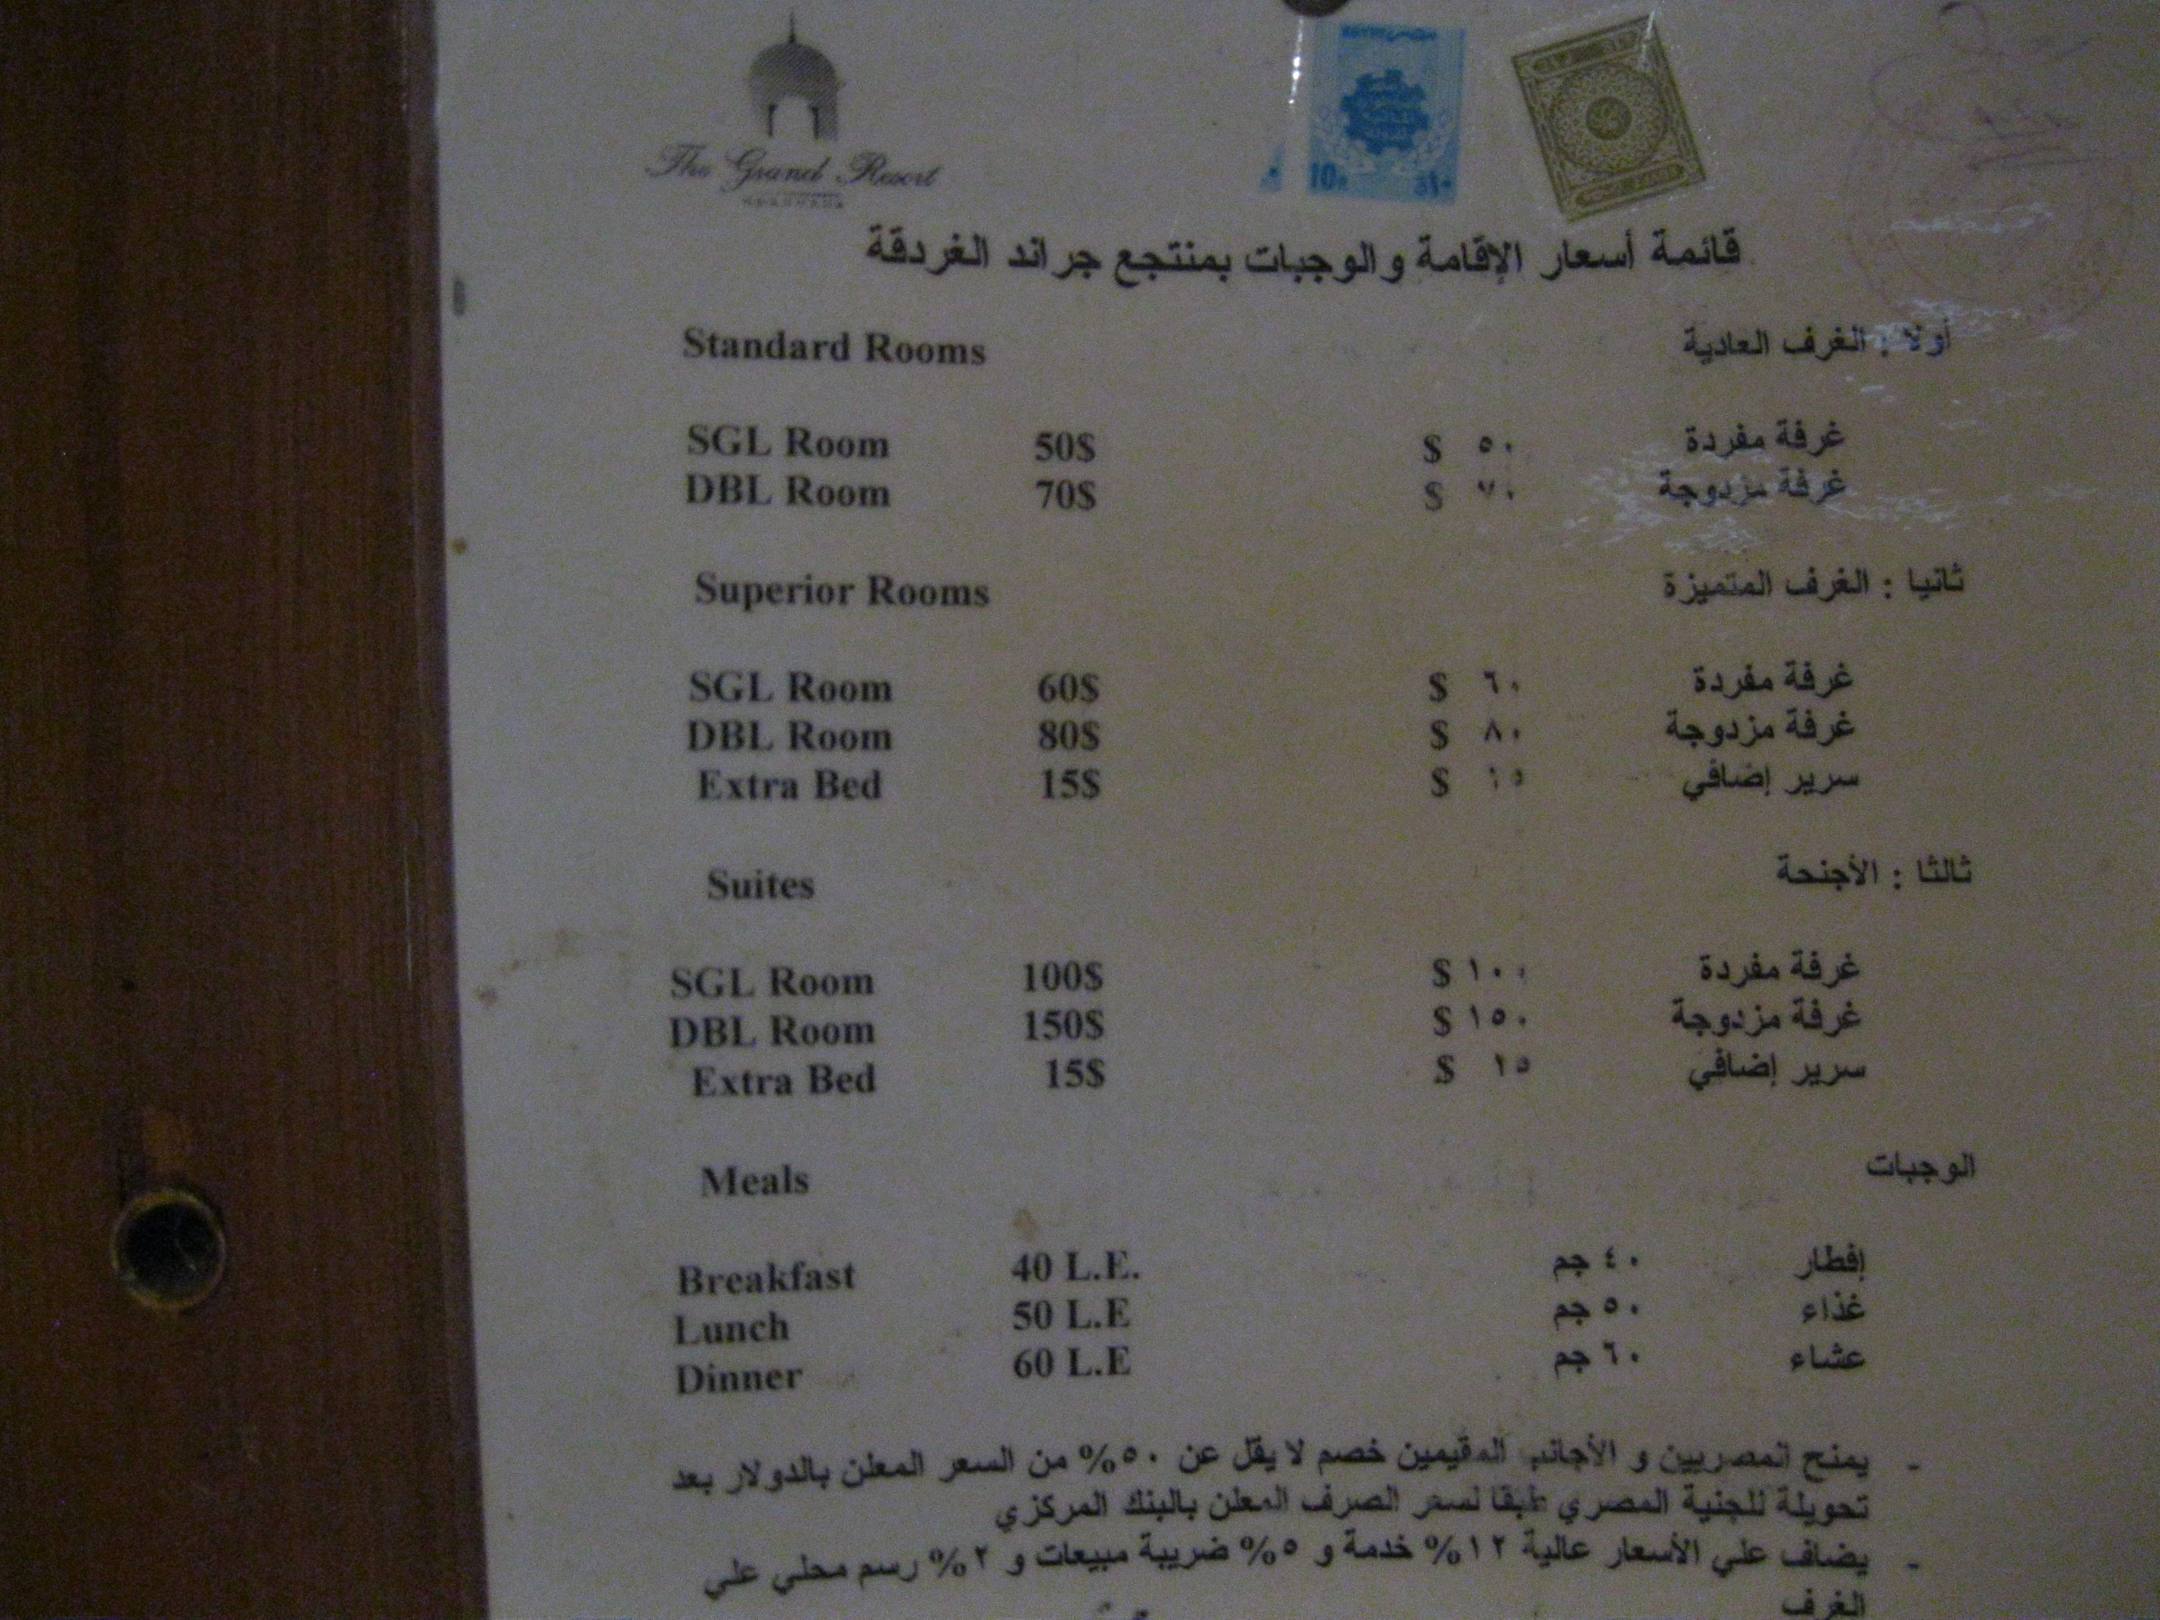 The Grand Resort
HURGHADA
10
١٠
قائمة أسعار الإقامة والوجبات بمنتجع جراند الغردقة
Standard Rooms أولا : الغرف العادية
SGL Room 50$ $ ٥٠ غرفة مفردة
DBL Room 70$ $ ٧٠ غرفة مزدوجة
Superior Rooms ثانيا : الغرف المتميزة
SGL Room 60$ $ ٦٠ غرفة مفردة
DBL Room 80$ $ ٨٠ غرفة مزدوجة
Extra Bed 15$ $ ١٥ سرير إضافي
Suites ثالثا : الأجنحة
SGL Room 100$ $ ١٠٠ غرفة مفردة
DBL Room 150$ $ ١٥٠ غرفة مزدوجة
Extra Bed 15$ $ ١٥ سرير إضافي
Meals الوجبات
Breakfast 40 L.E. ٤٠ جم إفطار
Lunch 50 L.E ٥٠ جم غذاء
Dinner 60 L.E ٦٠ جم عشاء
- يمنح المصريين و الأجانب المقيمين خصم لا يقل عن ٥٠% من السعر المعلن بالدولار بعد
تحويلة للجنية المصري طبقا لسعر الصرف المعلن بالبنك المركزي
- يضاف علي الأسعار عالية ١٢% خدمة و ٥% ضريبة مبيعات و ٢% رسم محلي علي
الغرف